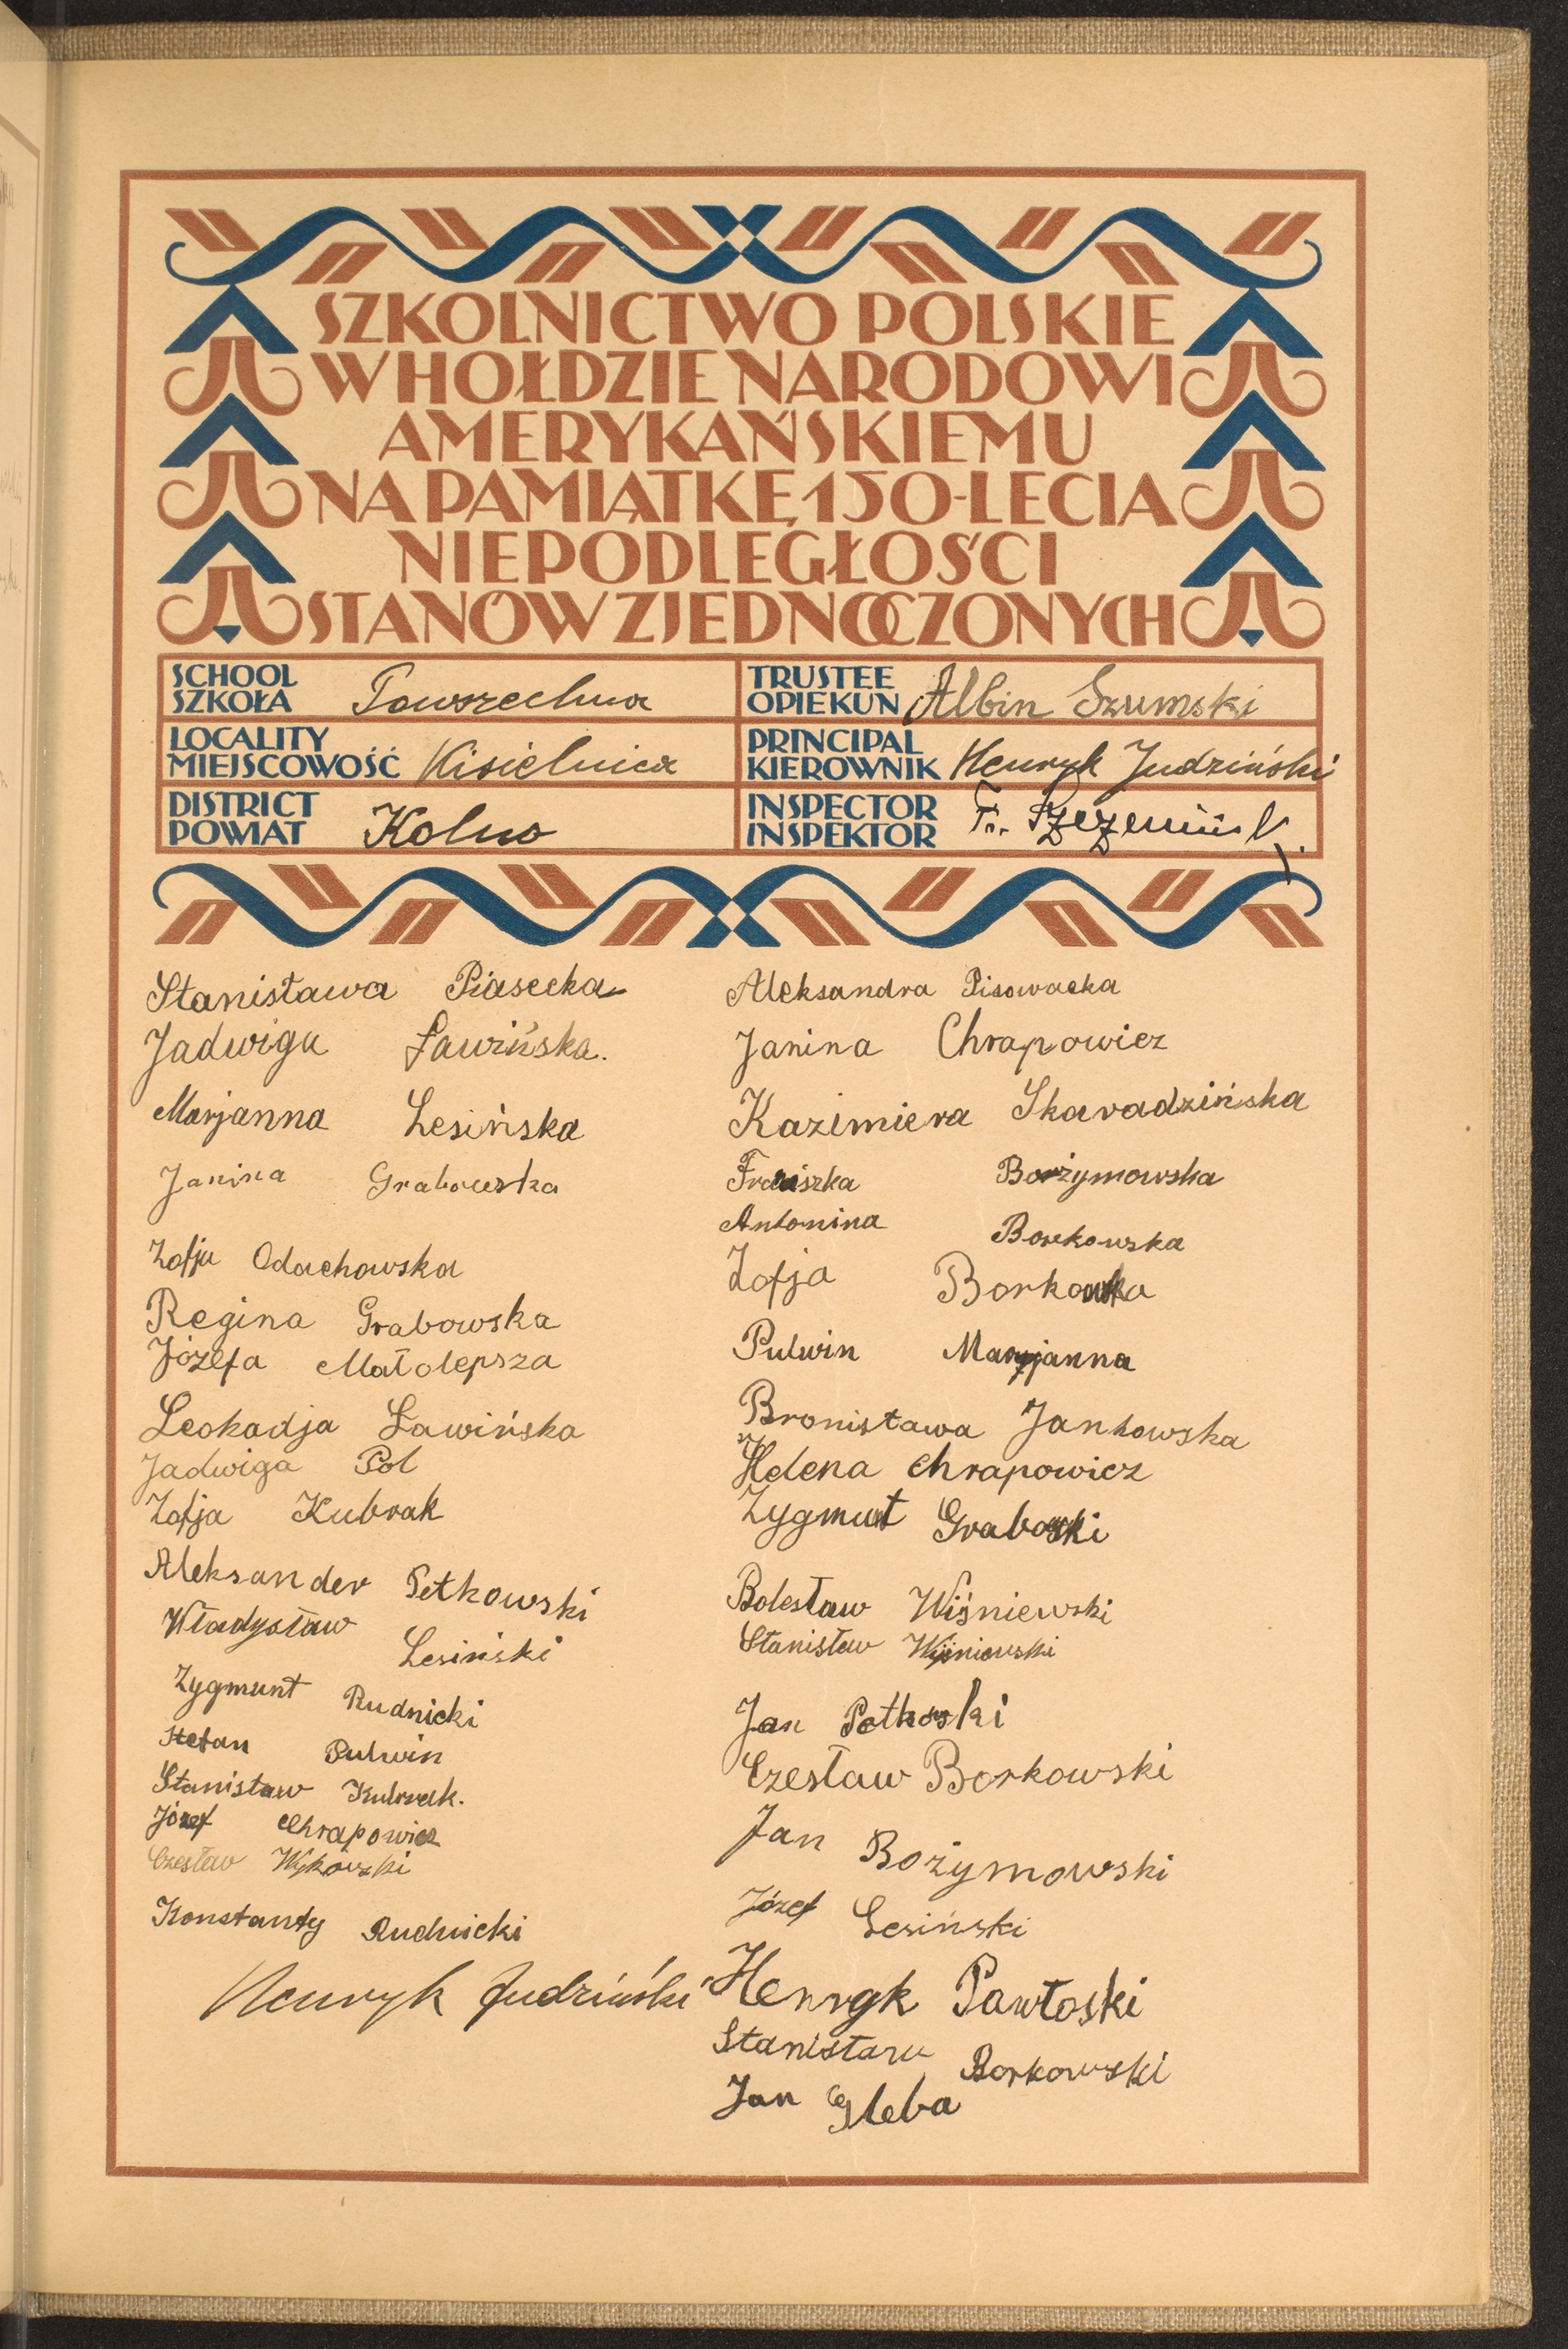 SZKOLNICTWO POLSKIE
W HOŁDZIE NARODOWI
AMERYKAŃSKIEMU
NA PAMIĄTKĘ 150-LECIA
NIEPODLEGŁOŚCI
STANÓW ZJEDNOCZONYCH
SCHOOL
SZKOŁA Powszechna
TRUSTEE
OPIEKUN Albin Szumski
LOCALITY
MIEJSCOWOŚĆ Kisielnica
PRINCIPAL
KIEROWNIK Henryk Judziński
DISTRICT
POWIAT Kolno
INSPECTOR
INSPEKTOR Fr.
Stanisława Piasecka
Jadwiga Ławińska.
Marjanna Lesińska
Janina Grabowska
Zofja Odachowska
Regina Grabowska
Józefa Małolepsza
Leokadja Ławińska
Jadwiga Pol
Zofja Kubrak
Aleksander Petkowski
Władysław Lesiński
Zygmunt Rudnicki
Stefan Pulwin
Stanisław Kubrak.
Józef Chrapowicz
Czesław Wykowski
Konstanty Rudnicki
Henryk Judziński
Aleksandra Pisowacka
Janina Chrapowicz
Kazimiera Skaradzińska
Borzymowska
Antonina Borkowska
Zofja Borkowska
Pulwin Maryjanna
Bronisława Jankowska
Helena Chrapowicz
Zygmunt Graboski
Bolesław Wiśniewski
Stanisław Wiśniewski
Jan Petkoski
Czesław Borkowski
Jan Bożymowski
Józef Lesiński
Henryk Pawłoski
Stanisław Borkowski
Jan Gleba